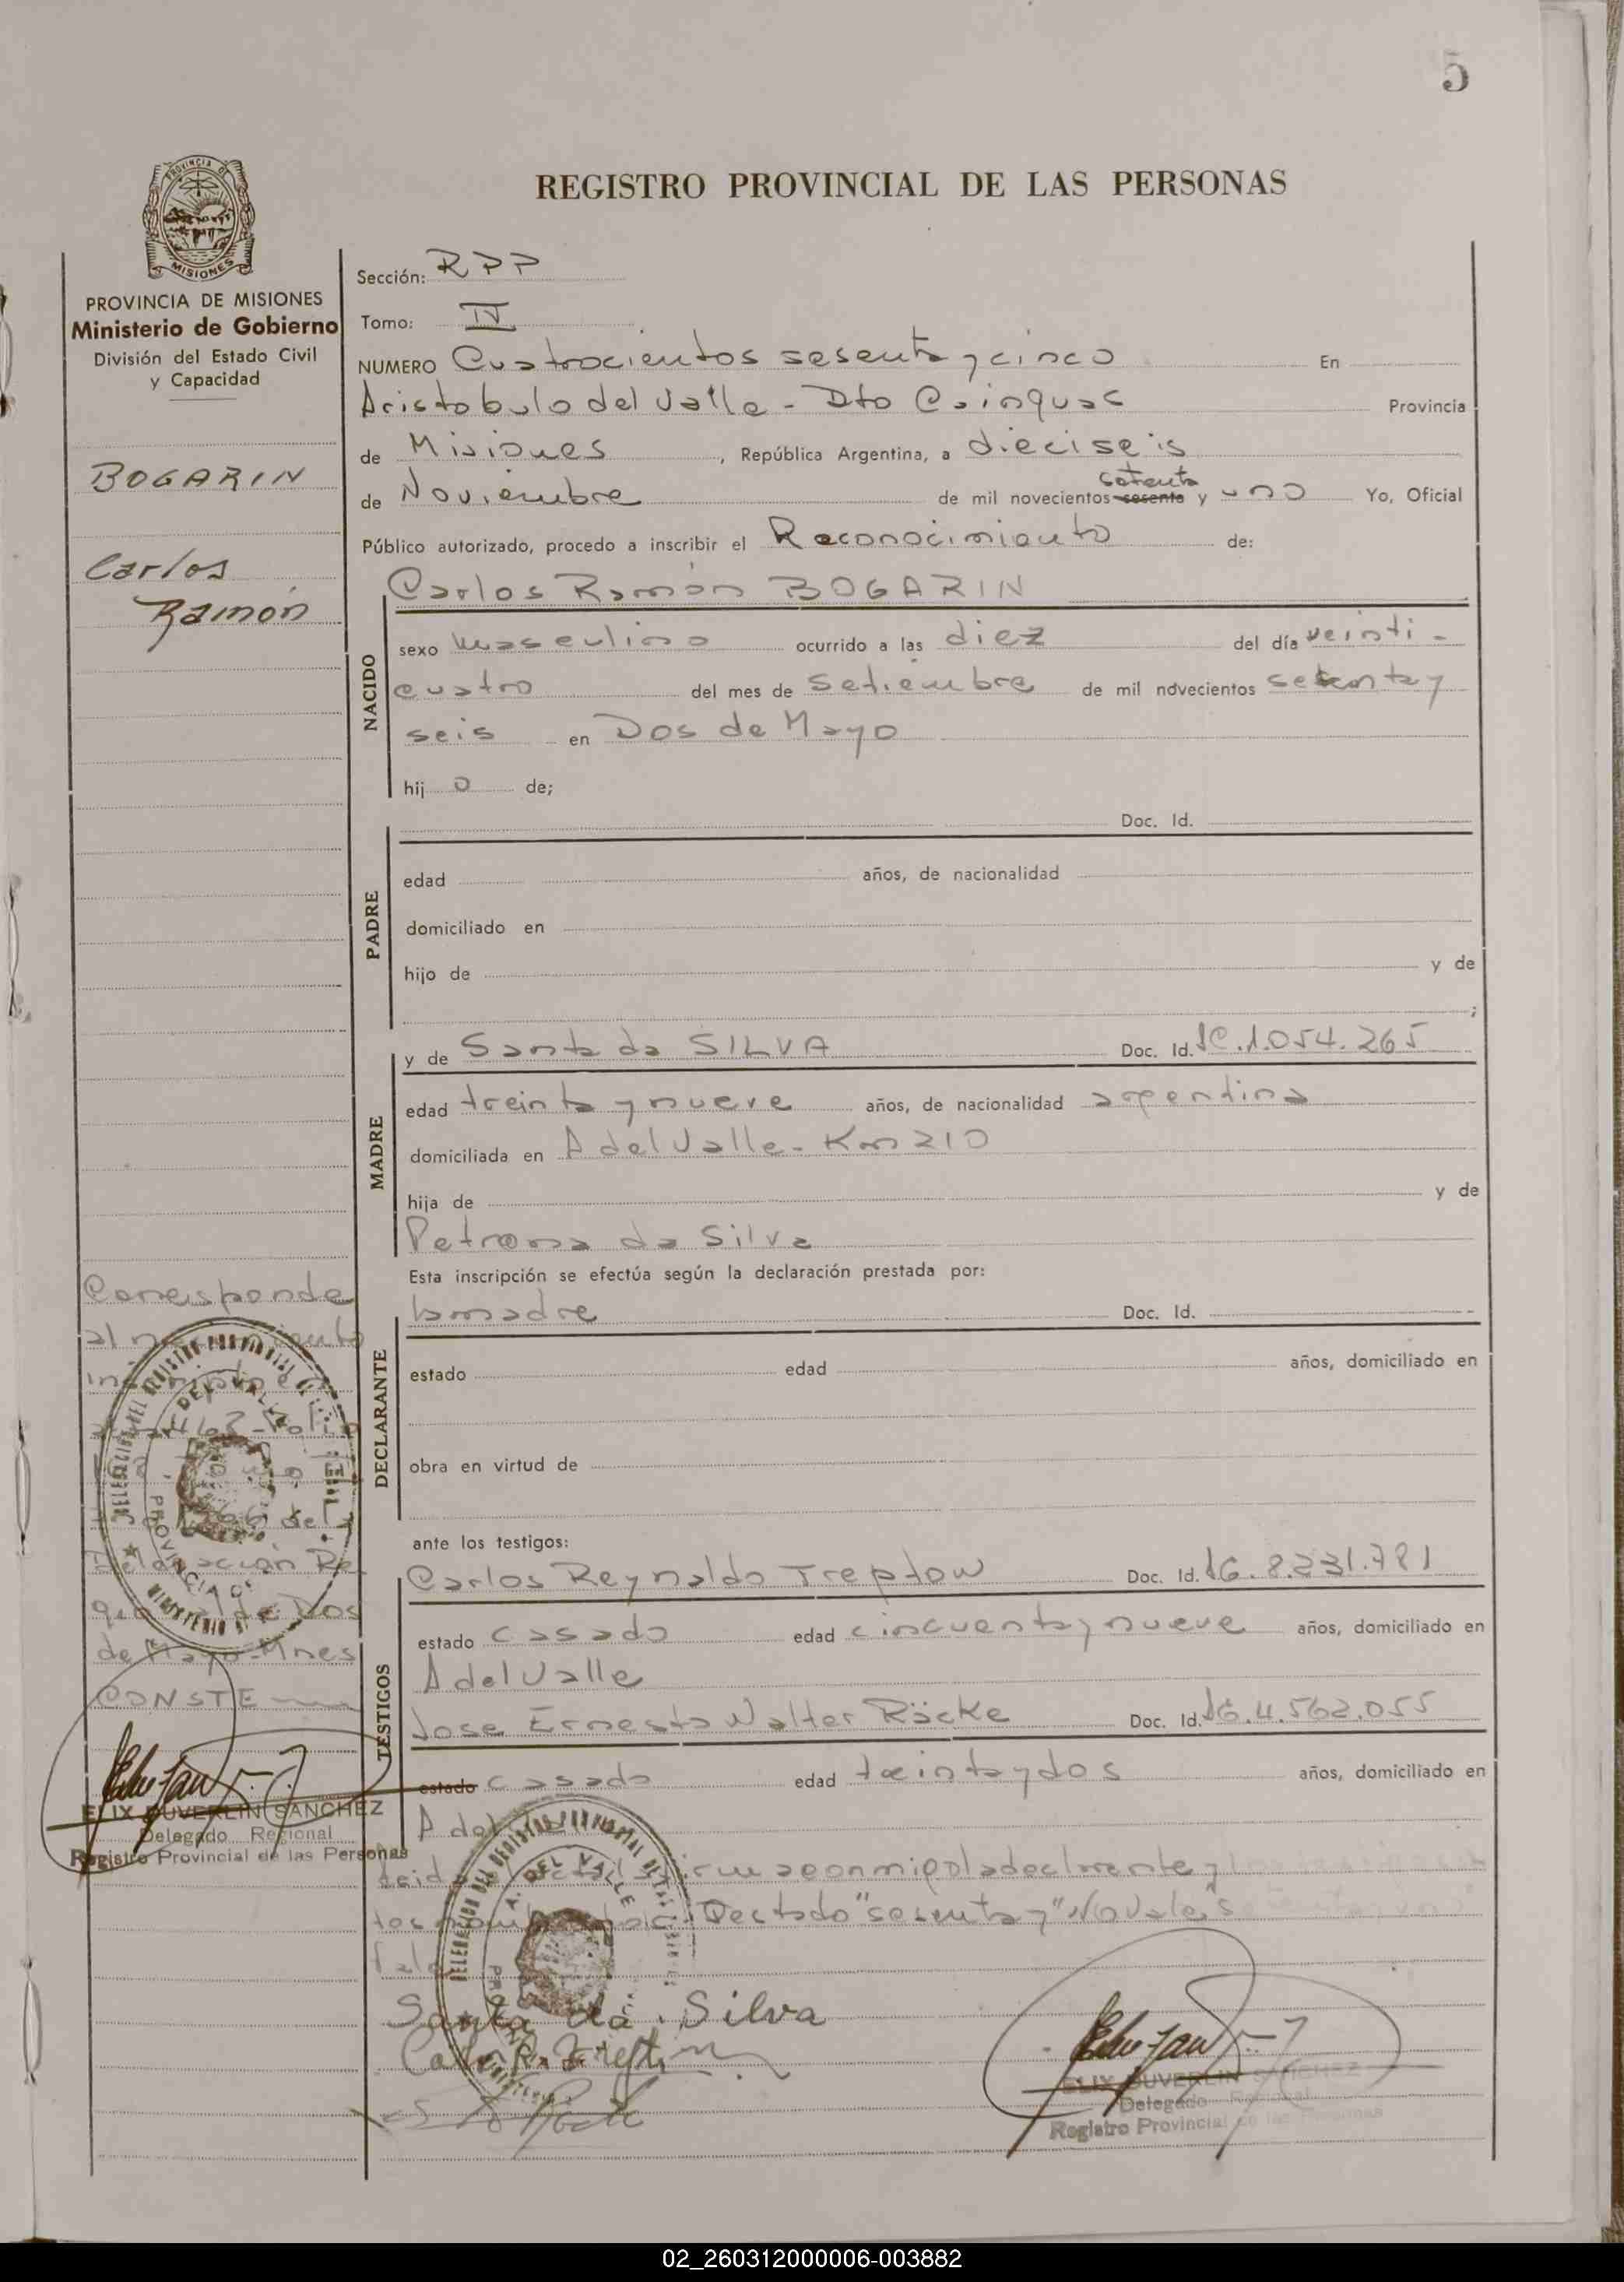 5
REGISTRO PROVINCIAL DE LAS PERSONAS
PROVINCIA DE MISIONES
Ministerio de Gobierno
División del Estado Civil
y Capacidad
BOGARIN
Carlos
Ramón
Sección: RPP
Tomo: IV
NUMERO Cuatrocientos sesenta y cinco En
Aristobulo del Valle - Dto Cainguas Provincia
de Misiones, República Argentina, a dieciseis
setenta
de Noviembre de mil novecientos sesenta y uno Yo, Oficial
Público autorizado, procedo a inscribir el Reconocimiento de:
Carlos Ramón BOGARIN
NACIDO
sexo masculino ocurrido a las diez del día veinti-
cuatro del mes de Setiembre de mil novecientos sesenta y
seis en Dos de Mayo
hijo de;
Doc. Id.
PADRE
edad años, de nacionalidad
domiciliado en
hijo de y de
;
y de Santa da SILVA Doc. Id. IC.1.054.265
MADRE
edad treinta y nueve años, de nacionalidad argentina
domiciliada en A del Valle - Km 210
hija de y de
Petrona da Silva
Esta inscripción se efectúa según la declaración prestada por:
la madre Doc. Id.
DECLARANTE
estado edad años, domiciliado en
obra en virtud de
ante los testigos:
Carlos Reynaldo Treptow Doc. Id. 8.231.781
TESTIGOS
estado casado edad cincuenta y nueve años, domiciliado en
A del Valle
Jose Ernesto Walter Räcke Doc. Id. 4.562.055
estado casado edad treinta y dos años, domiciliado en
A del
conmigo la declarante y
Testado "sesenta y" No vale
Santa da Silva
Corresponde
al
de Dos
de Mayo - Mnes
CONSTE
ELIX DUVERLIN SANCHEZ
Delegado Regional
Registro Provincial de las Personas
ELIX DUVERLIN SANCHEZ
Delegado Regional
Registro Provincial de las Personas
02_260312000006-003882